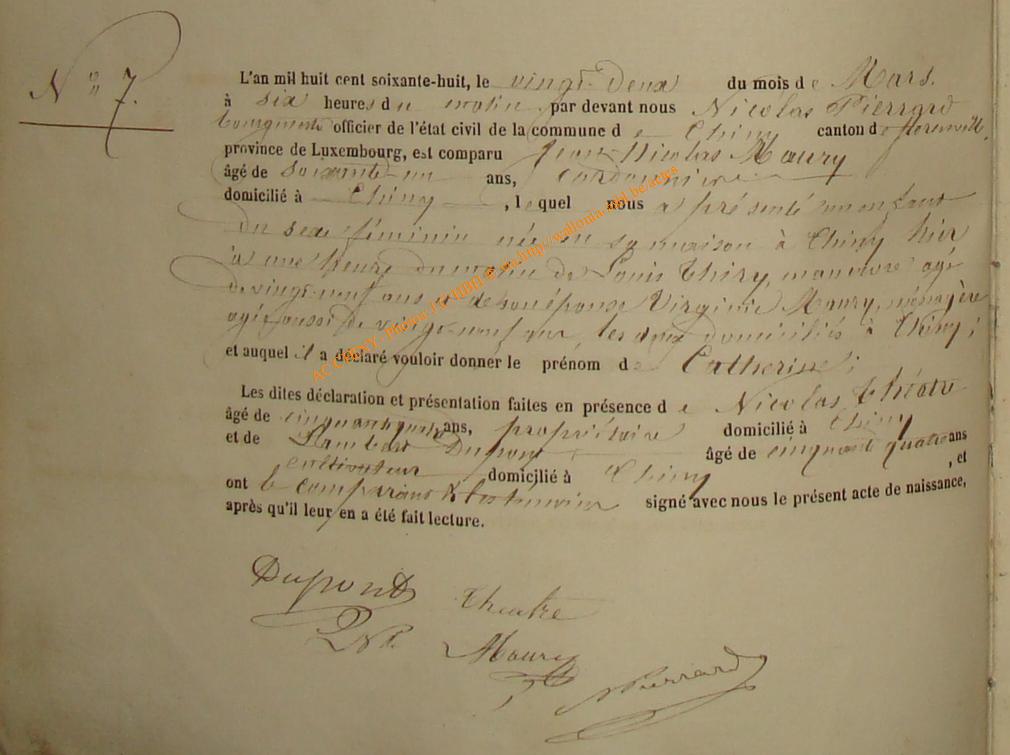 N° 7.
L'an mil huit cent soixante-huit, le vingt Deux du mois de Mars.
à six heures du matin par devant nous Nicolas Pierrard
Bourgmestre officier de l'état civil de la commune de Chiny canton de florenville
province de Luxembourg, est comparu Jean-Nicolas Maury
âgé de soixante-un ans, cordonnier
domicilié à Chiny, lequel nous a présenté un enfant
du sexe féminin née en sa maison à Chiny hier
à une heure du matin de Louis Thiry, manœuvre agé
de vingt-neuf ans et de son épouse Virginie Maury, ménagère
agée aussi de vingt-neuf ans, les deux domiciliés à Chiny;
et auquel il a déclaré vouloir donner le prénom de Catherine;
Les dites déclaration et présentation faites en présence de Nicolas théatre
âgé de ans, propriétaire domicilié à Chiny
et de Lambert Dupont âgé de cinquante quatre ans
cultivateur domicilié à Chiny, et
ont le comparant & les témoins signé avec nous le présent acte de naissance,
après qu'il leur en a été fait lecture.
Dupont Theatre
JN Maury
NPierrard